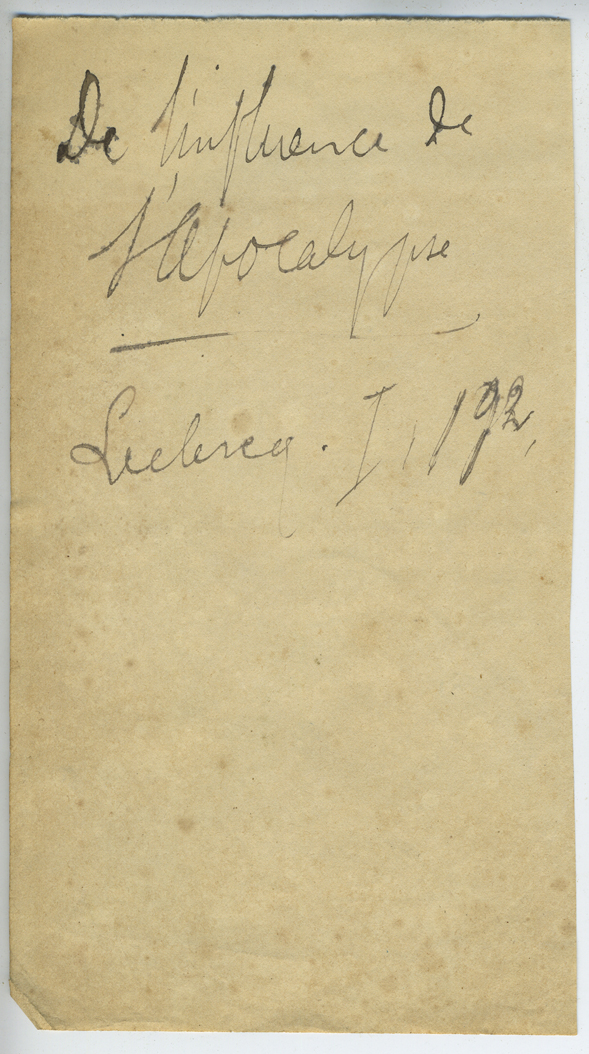 De l'influence de
l'Apocalypse
Leclercq. I, 192,